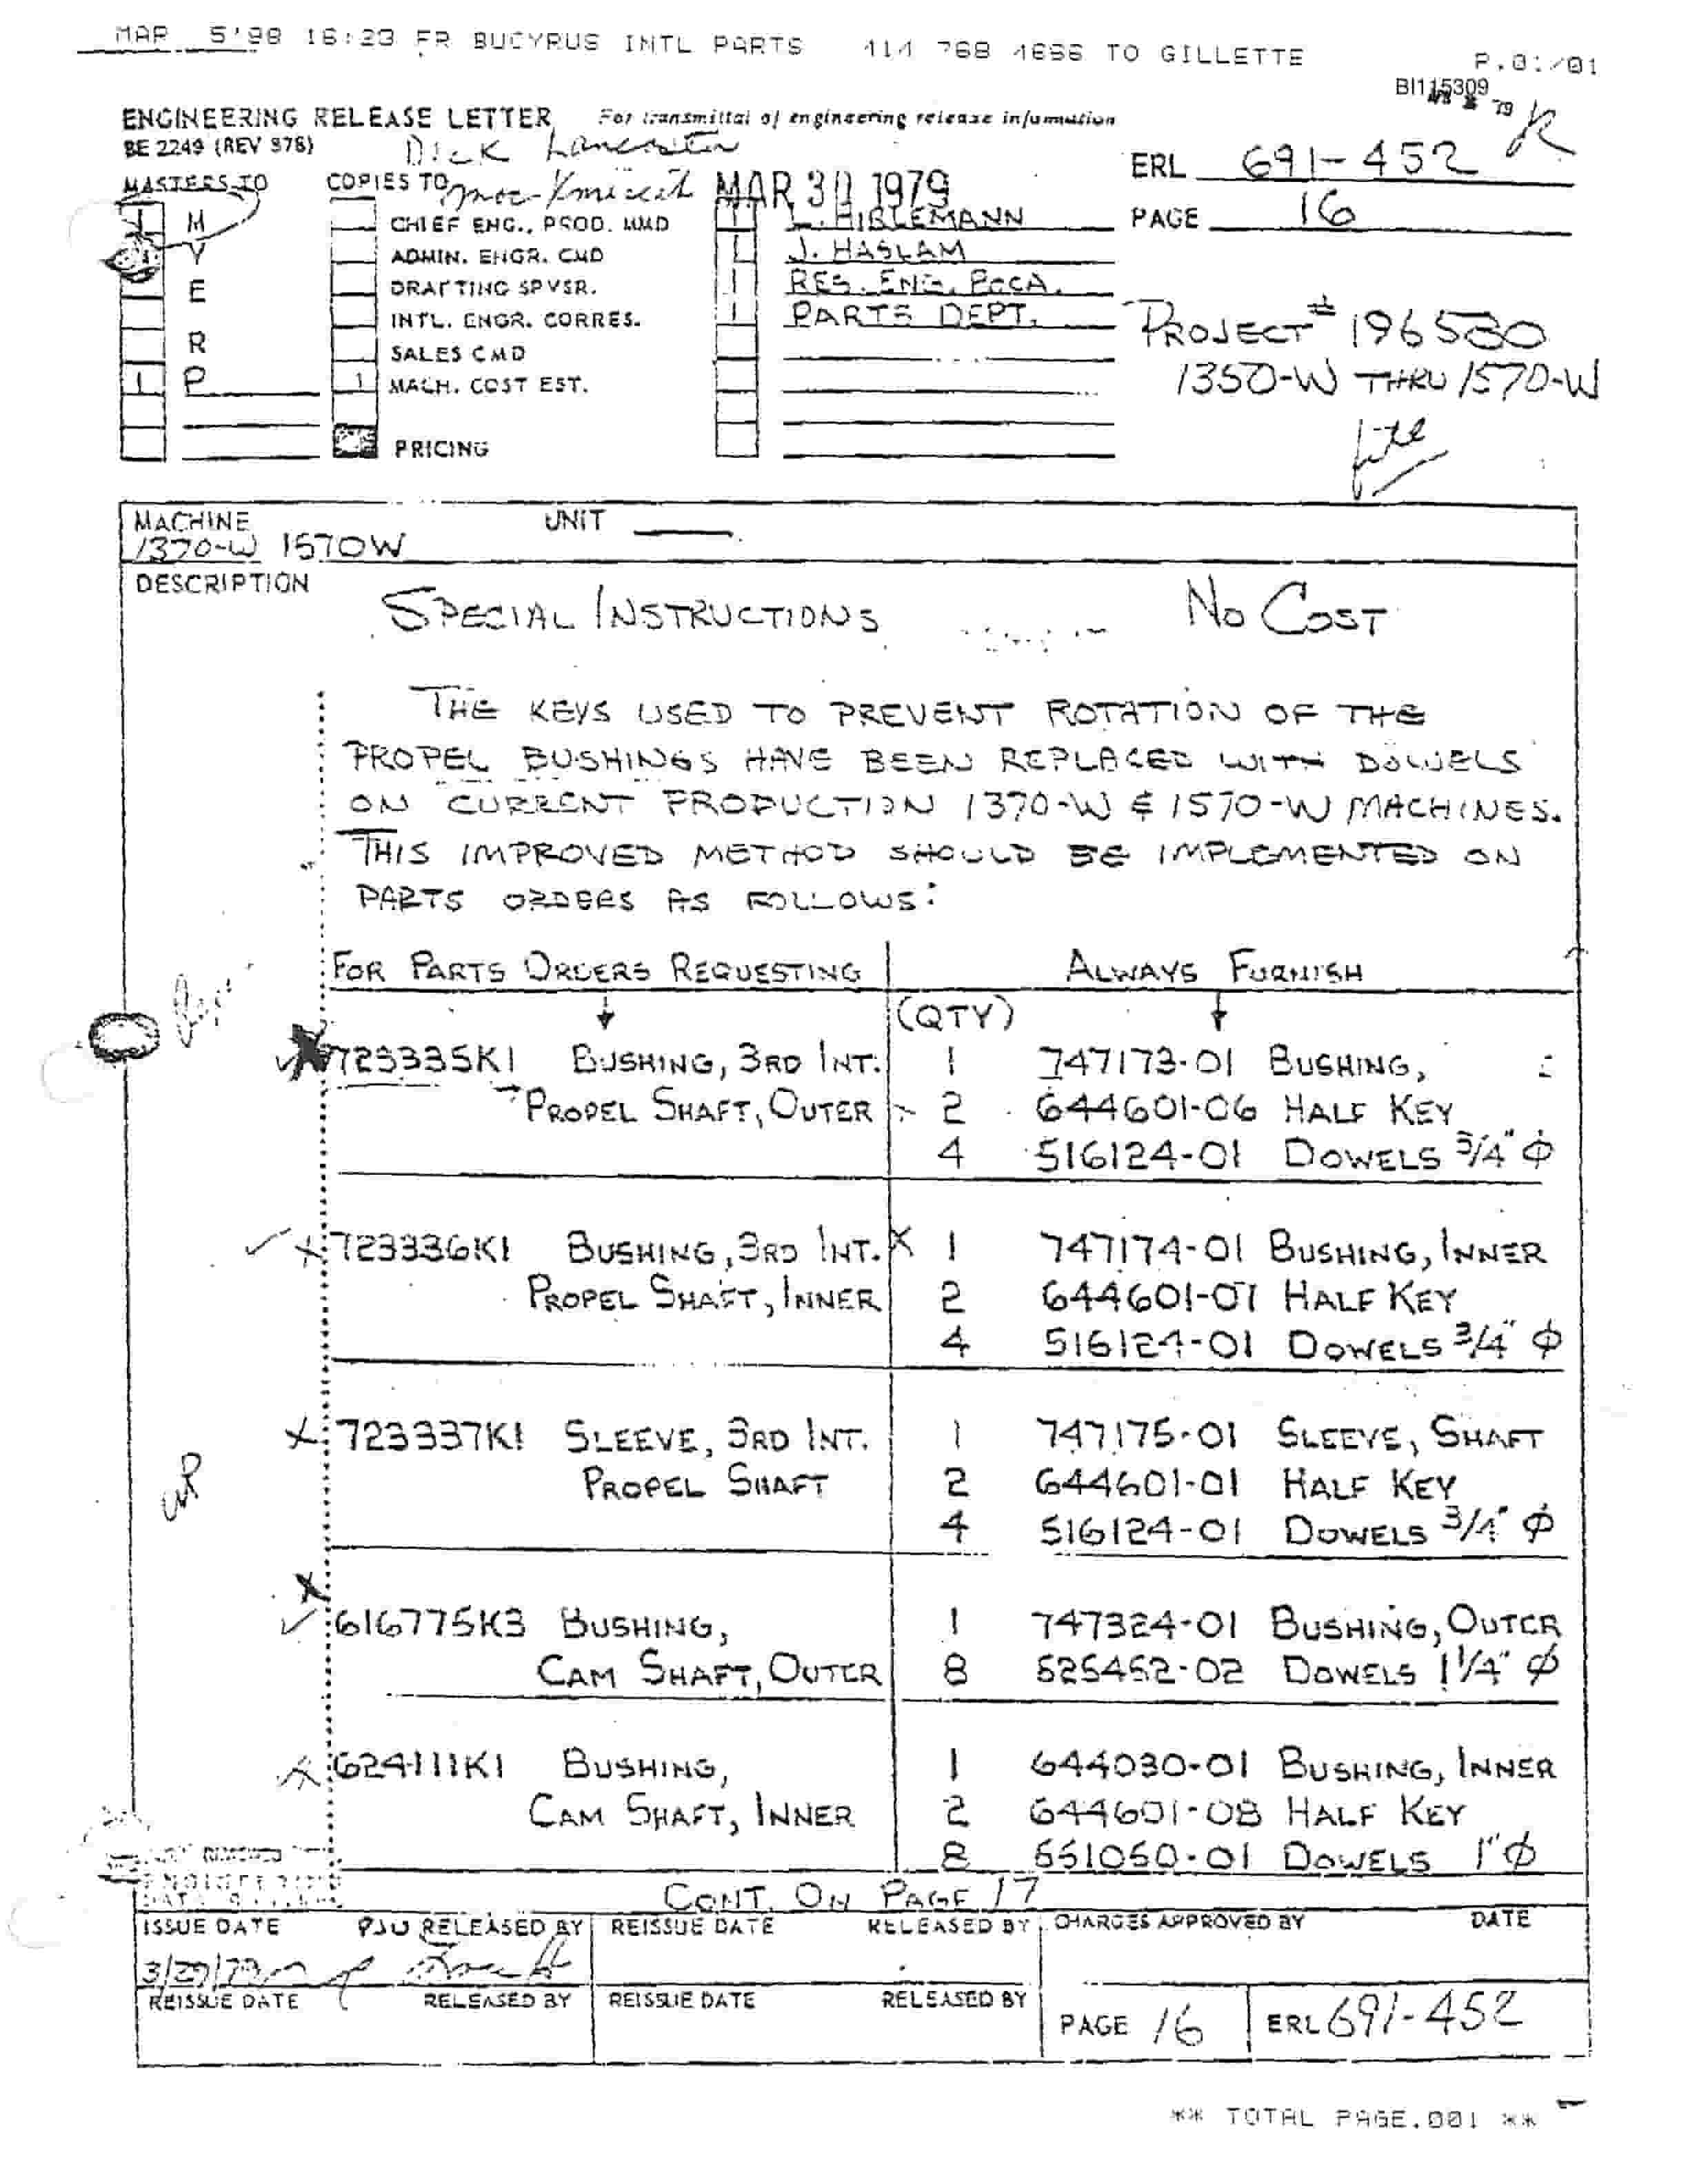 MAR 5'98 16:23 FR BUCYRUS INTL PARTS 414 768 4686 TO GILLETTE P.01/01
BI115309
ENGINEERING RELEASE LETTER For transmittal of engineering release information
BE 2249 (REV 978) Dick Lancaster
ERL 691-452
MASTERS TO COPIES TO MAR 30 1979
PAGE 16
M CHIEF ENG., PROD. MMD L. HIRLEMANN
Y ADMIN. ENGR. CMD J. HASLAM
E DRAFTING SPVSR. RES. ENG. POCA.
INTL. ENGR. CORRES. 1 PARTS DEPT.
PROJECT # 196530
R SALES CMD
1350-W THRU 1570-W
1 P 1 MACH. COST EST.
file
PRICING
MACHINE UNIT
1370-W 1570W
DESCRIPTION
SPECIAL INSTRUCTIONS NO COST
THE KEYS USED TO PREVENT ROTATION OF THE
PROPEL BUSHINGS HAVE BEEN REPLACED WITH DOWELS
ON CURRENT PRODUCTION 1370-W & 1570-W MACHINES.
THIS IMPROVED METHOD SHOULD BE IMPLEMENTED ON
PARTS ORDERS AS FOLLOWS:
FOR PARTS ORDERS REQUESTING ALWAYS FURNISH
(QTY)
723335K1 BUSHING, 3RD INT. 1 747173-01 BUSHING,
PROPEL SHAFT, OUTER 2 644601-06 HALF KEY
4 516124-01 DOWELS 3/4" ϕ
723336K1 BUSHING, 3RD INT. 1 747174-01 BUSHING, INNER
PROPEL SHAFT, INNER 2 644601-07 HALF KEY
4 516124-01 DOWELS 3/4" ϕ
723337K1 SLEEVE, 3RD INT. 1 747175-01 SLEEVE, SHAFT
PROPEL SHAFT 2 644601-01 HALF KEY
4 516124-01 DOWELS 3/4" ϕ
616775K3 BUSHING, 1 747324-01 BUSHING, OUTER
CAM SHAFT, OUTER 8 525452-02 DOWELS 1 1/4" ϕ
624111K1 BUSHING, 1 644030-01 BUSHING, INNER
CAM SHAFT, INNER 2 644601-08 HALF KEY
8 551050-01 DOWELS 1" ϕ
CONT. ON PAGE 17
ISSUE DATE RELEASED BY REISSUE DATE RELEASED BY CHARGES APPROVED BY DATE
3/29/79
REISSUE DATE RELEASED BY REISSUE DATE RELEASED BY
PAGE 16 ERL 691-452
** TOTAL PAGE.001 **